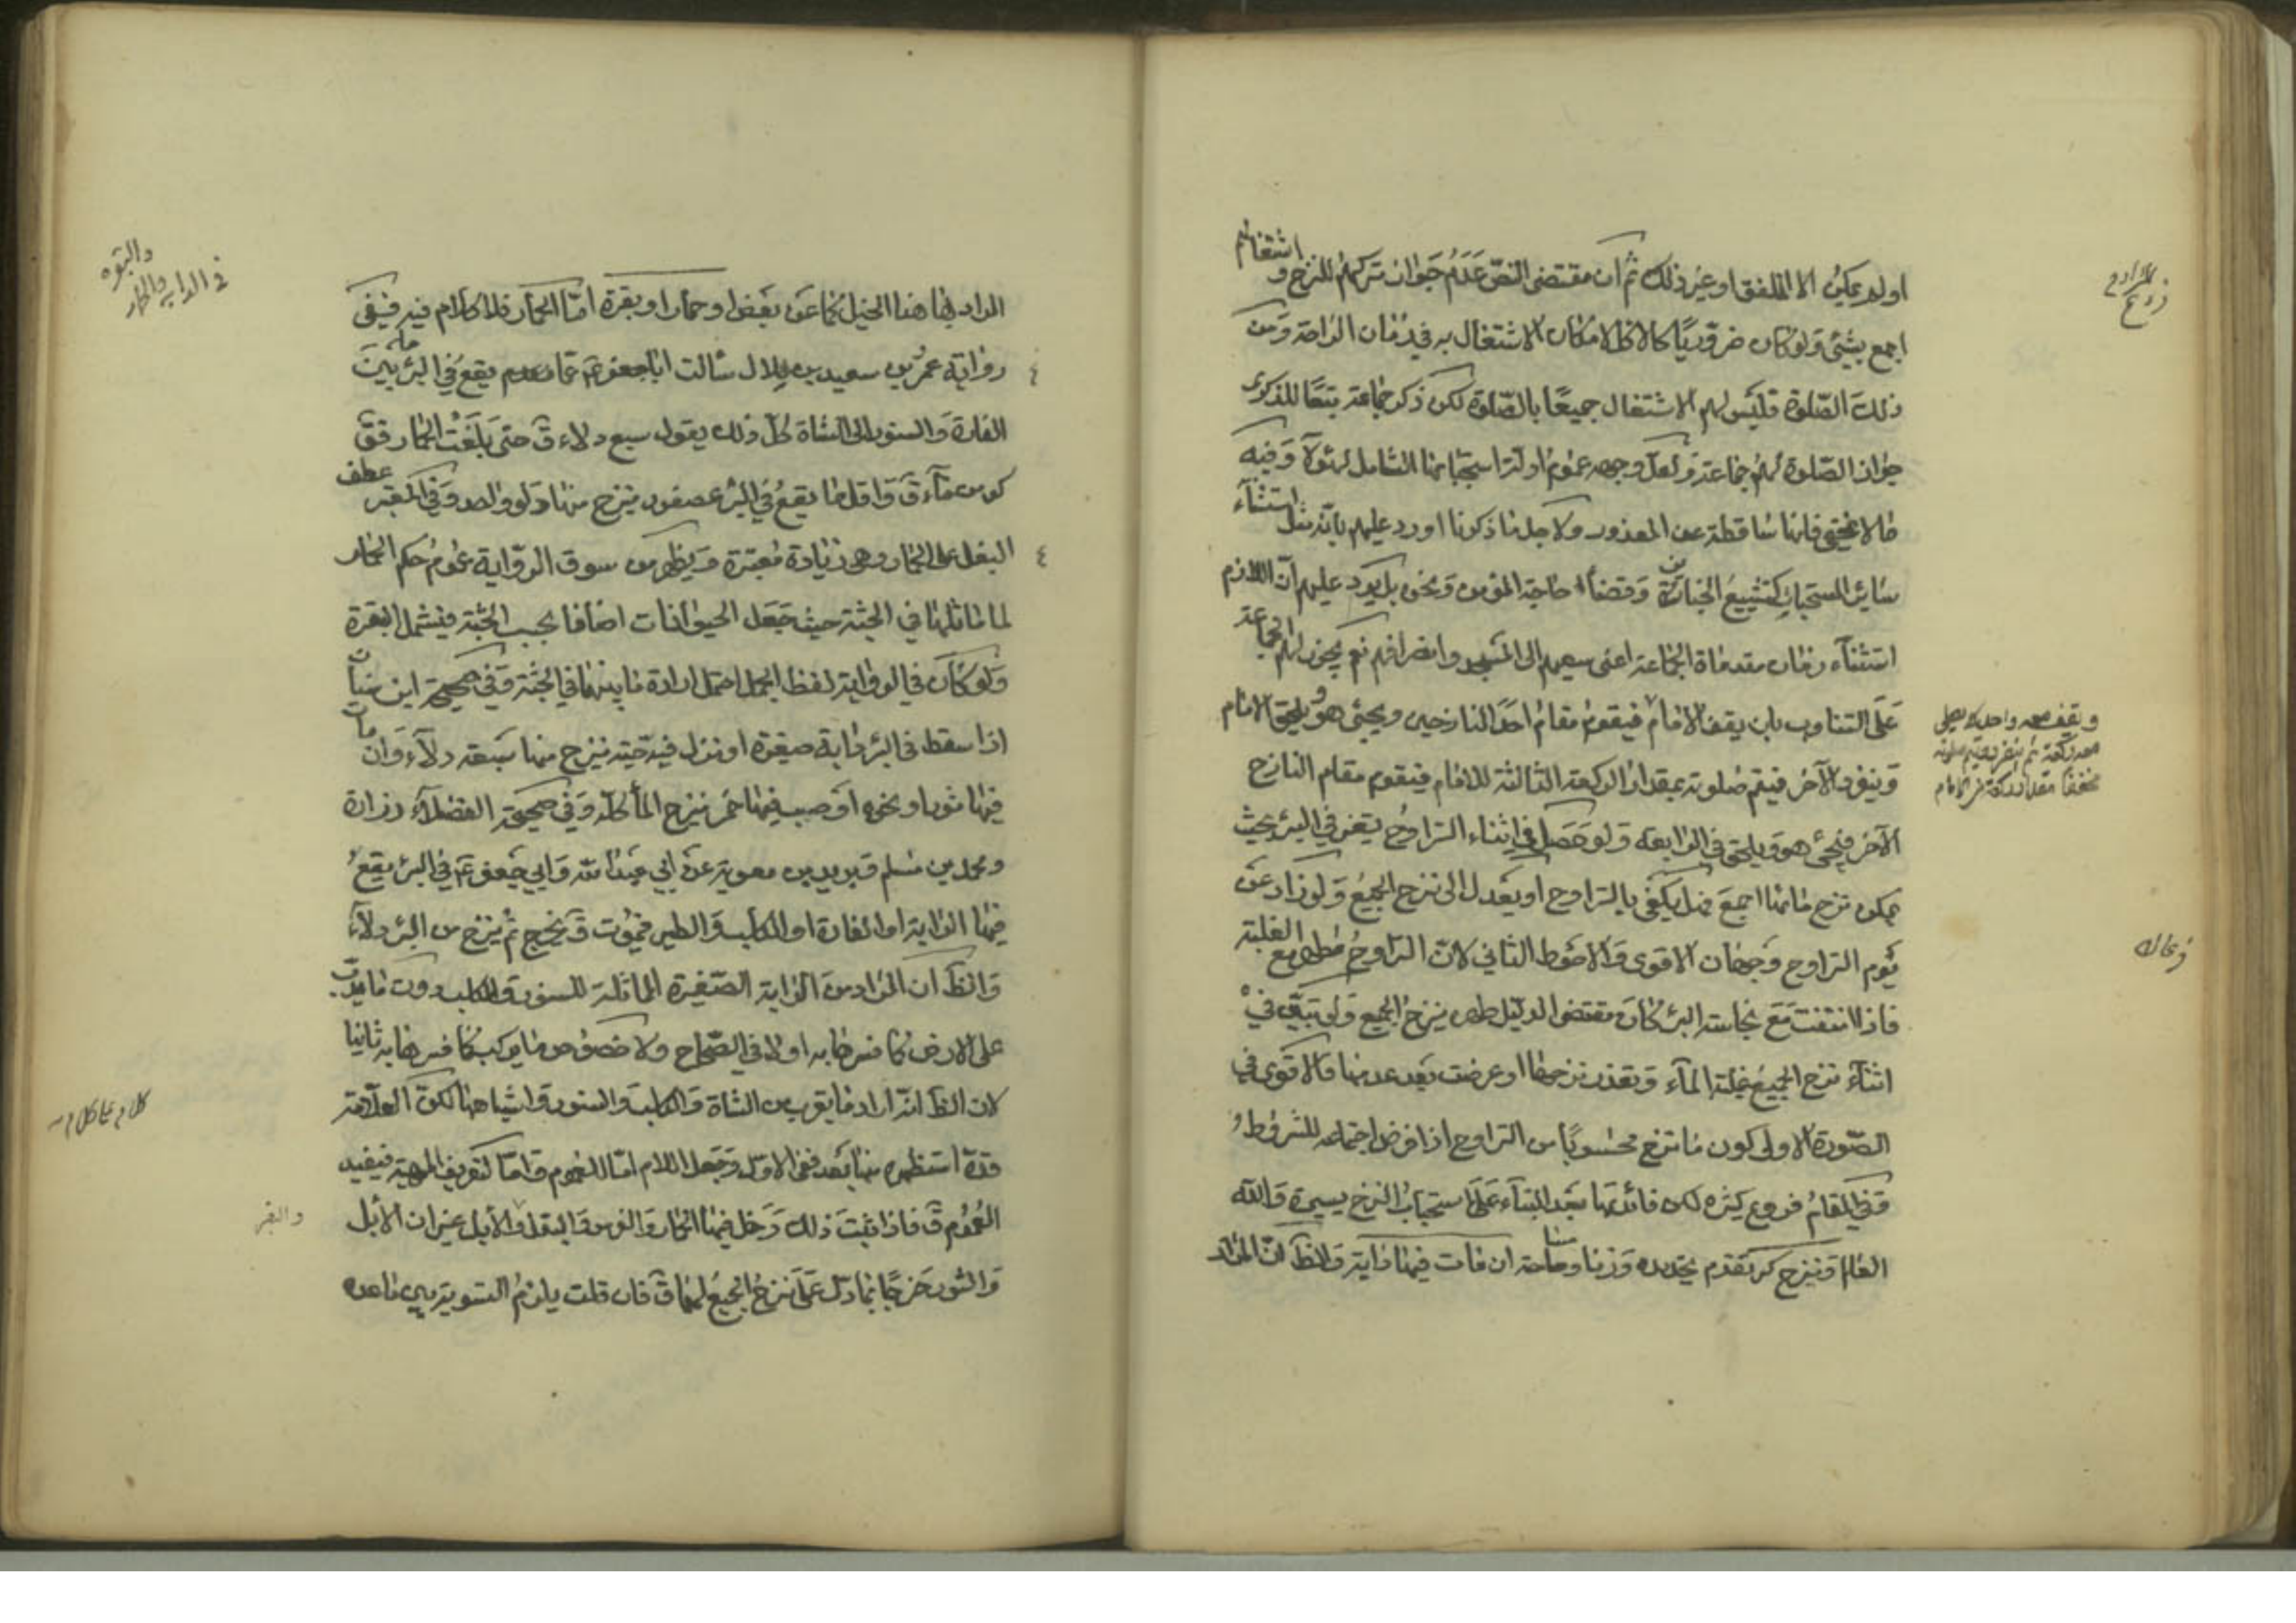 اولم يمكن الا الملفق او غير ذلك ثم ان مقتضى النص عدم جواز تركهم للنزح و اشتغالهم
اجمع بشئ ولو كان ضروريًا كالاكل لامكان الاشتغال به في زمان الراحة ومن
ذلك الصلوة فليس لهم الاشتغال جميعًا بالصلوة لكن ذكر جماعة تبعًا للذكرى
جواز الصلوة لهم جماعة ولعل وجهه عموم ادلة استحبابها الشامل لهؤلآ وفيه
ما لا يخفى فانها ساقطة عن المعذور ولاجل ما ذكرنا اورد عليهم بانه مثل استثنآء
ساير المستحبات كتشييع الجنازة وقضآء حاجة المؤمن ونحن بل يرد عليهم ان اللازم
استثنآء زمان مقدماة الجماعة اعني سعيهم الى المسجد وانصرافهم نعم يجوز لهم الجماعة
على التناوب بان يقف الامام فيقوم مقام احد النازحين ويجئ هو ويلحق الامام
وينفرد الآخر فيتم صلوته بمقدار الركعة الثالثة للامام فيقوم مقام النازح
الآخر فيجئ هو ويلحق في الرابعة ولو حصل في اثناء التراوح تغير في البئر بحيث
يمكن نزح مائها اجمع فهل يكتفى بالتراوح او يعدل الى نزح الجميع ولو زاد عن
يوم التراوح وجهان الاقوى والاحوط الثاني لان التراوح مطهر مع الغلبة
فاذا انتفت مع نجاسة البئر كان مقتضى الدليل طهر بنزح الجميع ولو تبين في
اثنآء نزح الجميع غلبة المآء وتعذر نزحها او عرضت بعد عدمها فالاقوى في
الصورة الاولى كون ما نزح محسوبًا من التراوح اذا فرض اجتماعه للشروط
وفي المقام فروع كثيرة لكن فائدتها بعد البنآء على استحباب النزح يسيرة والله
العالم وينزح كر تقدم تحديده وزنا ومساحة ان مات فيها دابة والظ ان المراد
ويقف معه واحد يصلي
معه ركعة ثم ينفرد ويتم صلوته
مخففا مقدار ركعة من الامام
المراد بها هنا الخيل كما عن بعض او حمار او بقرة امّا الحمار فلا كلام فيه ففي
رواية عمر بن سعيد بن هلال سألت ابا جعفر ع عما يقع في البئر ما بين
الفارة والسنور الى الشاة كل ذلك يقول سبع دلاء ق حتى بلغت الحمار فق
كر من مآء ق واقل ما يقع في البئر عصفور ينزح منها دلو واحد وفي المعتبر عطف
البغل على الحمار وهي زيادة معتبرة ويظهر من سوق الرواية عموم حكم الحمار
لما ماثلها في الجثة حيث جعل الحيوانات اصنافا بحسب الجثة فيشمل البقرة
ولو كان في الرواية لفظ الجمل احتمل ارادة ما بينهما في الجثة وفي صحيحة ابن سنان
اذا سقط في البئر دابة صغيرة او نزل فيه جنب نزح منها سبعة دلآء وان مات
فيها ثور او نحوه او صب فيها خمر نزح المآ كله وفي صحيحة الفضلآء زرارة
ومحمد بن مسلم وبريد بن معوية عن ابي عبد الله وابي جعفر ع في البئر يقع
فيها الدابة او الفارة او الكلب والطير فيموت ق يخرج ثم ينزح من البئر دلآء
والظ ان المراد من الدابة الصغيرة المماثلة للسنور والكلب دون ما يدب
على الارض كما فسرها به اولا في الصحاح ولا خصوص ما يركب كما فسرها به ثانيا
لان الظ انه اراد ما يقرب من الشاة والكلب والسنور واشباهها لكن العلامة
قده استظهره منها بعد نفي الاول وجعل اللام امّا للعموم وامّا لتعريف المهية فيفيد
العموم ق فاذا ثبت ذلك دخل فيها الحمار والفرس والبغل والابل غير ان الابل
والثور خرجا بما دل على نزح الجميع لهما ق فان قلت يلزم التسوية بين ما عدده
والبقر